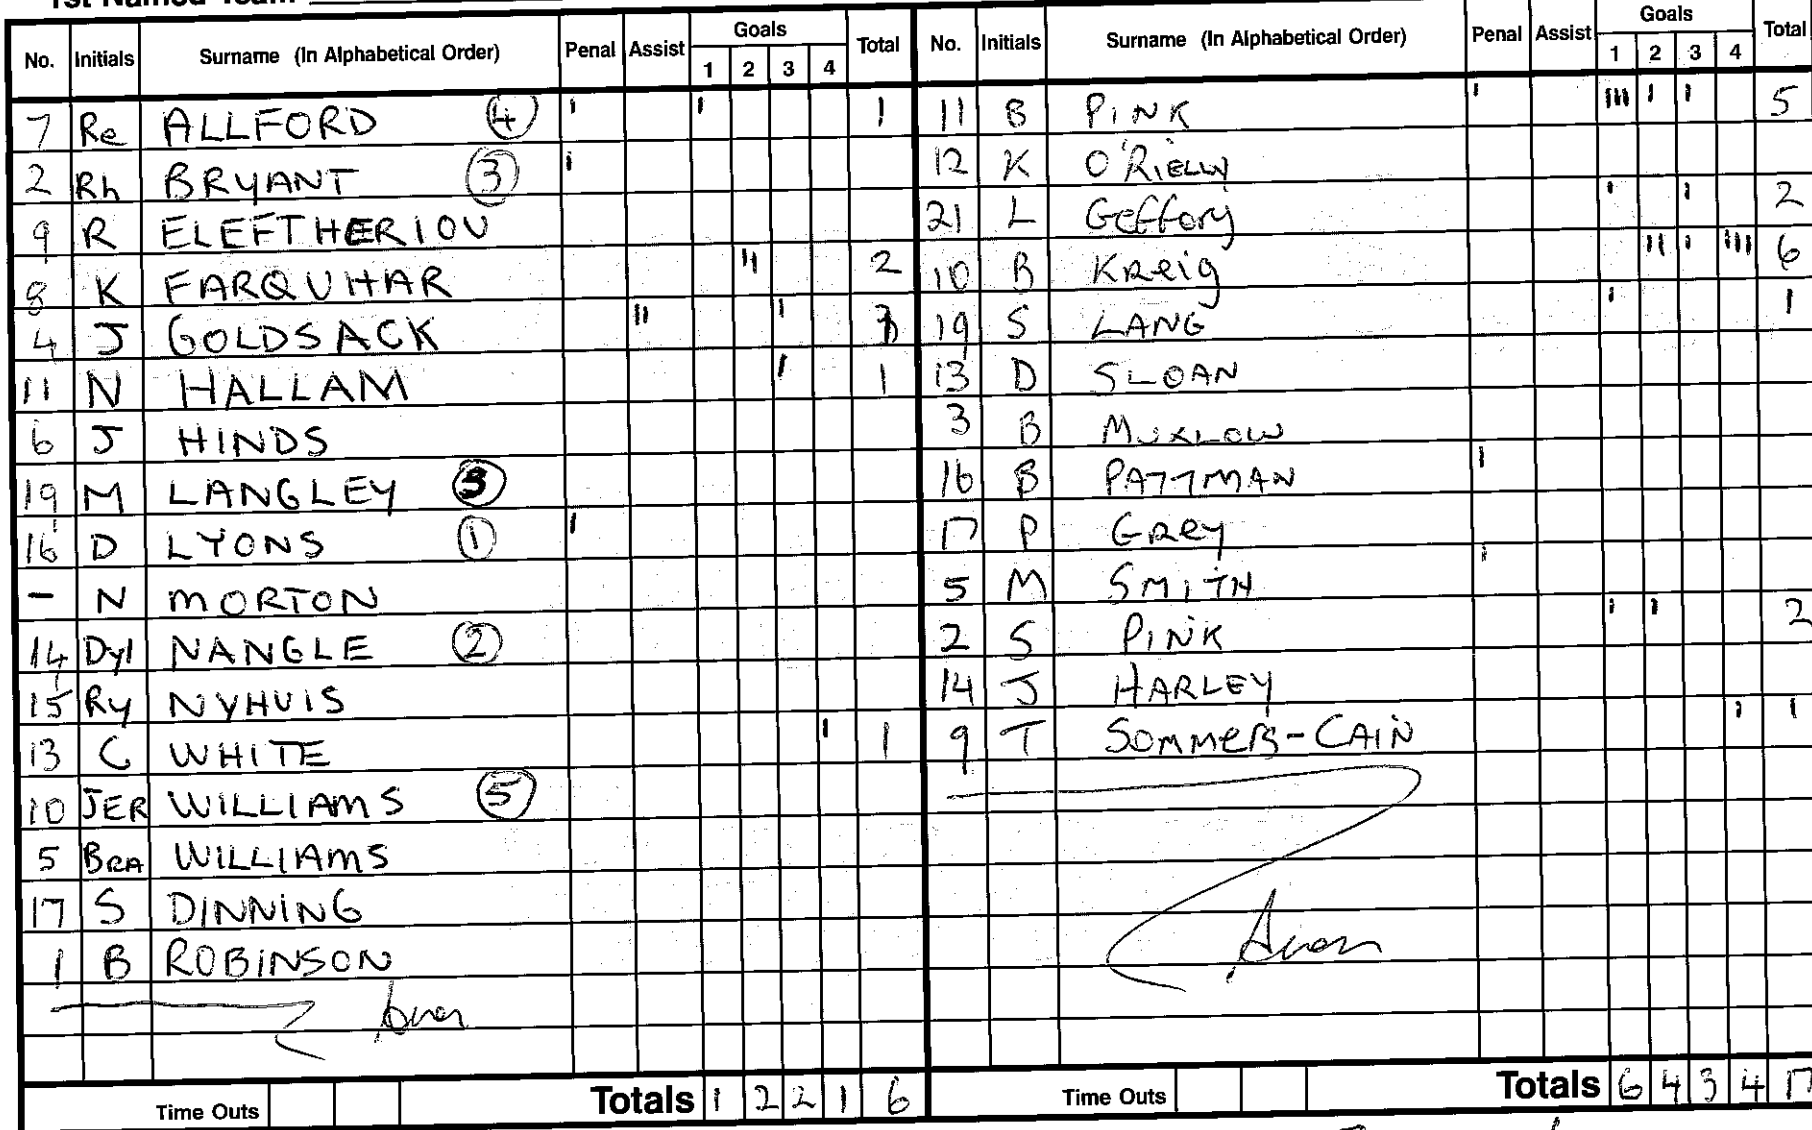 1st Named Team
No. Initials Surname (In Alphabetical Order) Penal Assist Goals 1 2 3 4 Total
7 Re ALLFORD 4 ' ' 1
2 Rh BRYANT 3 '
9 R ELEFTHERIOU
8 K FARQUHAR " 2
4 J GOLDSACK " '
11 N HALLAM ' 1
6 J HINDS
19 M LANGLEY 3
16 D LYONS 1 '
- N MORTON
14 Dyl NANGLE 2
15 Ry NYHUIS
13 C WHITE ' 1
10 JER WILLIAMS 5
5 BRA WILLIAMS
17 S DINNING
1 B ROBINSON
Time Outs Totals 1 2 2 1 6
No. Initials Surname (In Alphabetical Order) Penal Assist Goals 1 2 3 4 Total
11 B PINK ' ''' ' ' 5
12 K O'RIELLY
21 L Geffory ' ' 2
10 B KReig '' ' ''' 6
19 S LANG ' 1
13 D SLOAN
3 B MUXLOW
16 B PATTMAN '
17 P GRey
5 M SMITH '
2 S PINK ' ' 2
14 J HARLEY
9 T SOMMERS-CAIN ' 1
Time Outs Totals 6 4 3 4 17